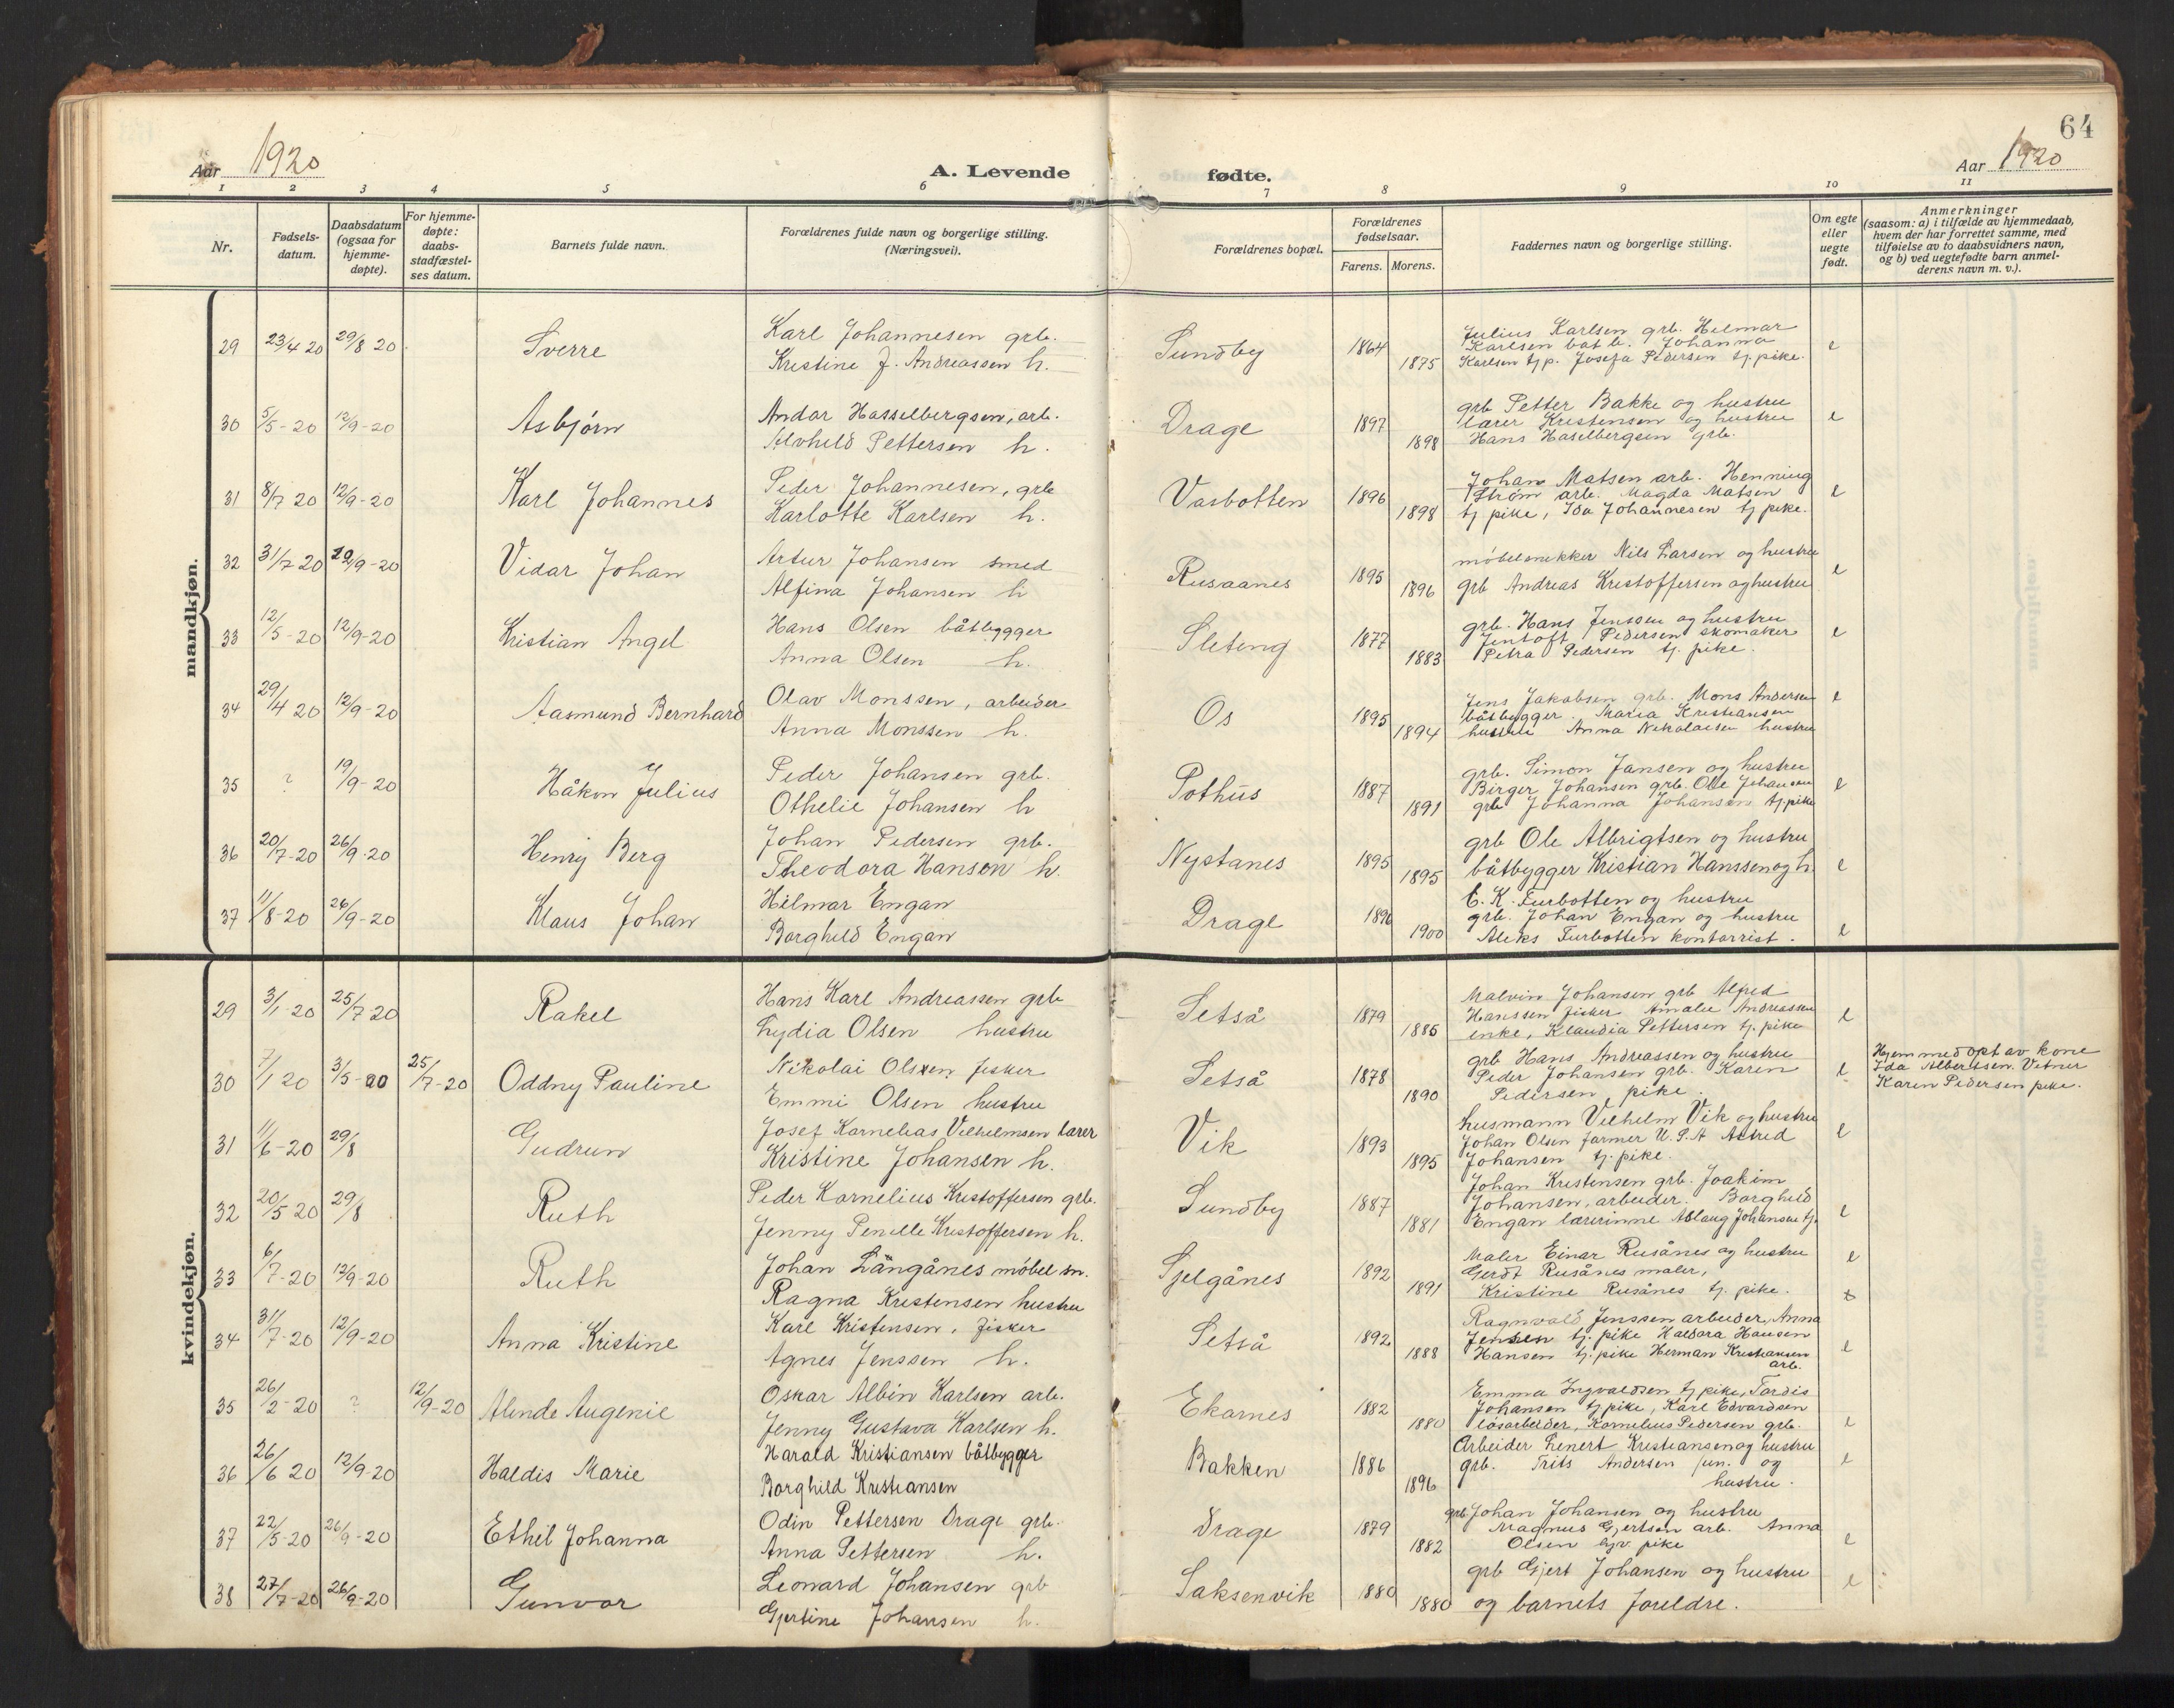 64
Aar 1920
A. Levende
fødte.
Aar 1920
1 2 3 4 5 6 7 8 9 10 11
Nr.
Fødsels-
datum.
Daabsdatum
(ogsaa for
hjemme-
døpte).
For hjemme-
døpte:
daabs-
stadfæstel-
ses datum.
Barnets fulde navn.
Forældrenes fulde navn og borgerlige stilling.
(Næringsvei).
Forældrenes bopæl.
Forældrenes
fødselsaar.
Farens. Morens.
Faddernes navn og borgerlige stilling.
Om egte
eller
uegte
født.
Anmerkninger
(saasom: a) i tilfælde av hjemmedaab,
hvem der har forrettet samme, med
tilføielse av to daabsvidners navn,
og b) ved uegtefødte barn anmel-
derens navn m. v.).
mandkjøn.
29 23/4 20 29/8 20 Sverre
Karl Johannesen grb.
Kristine J. Andreassen h.
Sundby 1864 1875
Julius Karlsen grb. Hilmar
Karlsen båtb. Johanna
Karlsen tj p. Josefa Pedersen tj. pike.
e
30 5/5-20 12/9-20 Asbjørn
Andor Hasselbergsen, arb.
Alvhild Pettersen h.
Drage 1897 1898
grb Petter Bakke og hustru
lærer Kristensen og hustru
Hans Haselbergsen grb.
e
31 8/7 20 12/9-20 Karl Johannes
Peder Johannesen, grb
Karlotte Karlsen h.
Vasbotten 1896 1898
Johan Matsen arb. Henning
Strøm arb. Magda Matsen
tj pike, Ida Johannesen tj pike.
e
32 31/7 20 12/9-20 Vidar Johan
Artur Johansen smed
Alfina Johansen h
Rusaanes 1895 1896
møbelsnekker Nils Larsen og hustru
grb Andreas Kristoffersen og hustru
e
33 12/5-20 12/9-20 Kristian Angel
Hans Olsen båtbyggger
Anna Olsen h.
Sleteng 1877 1883
grb. Hans Jenssen og hustru
Jentoft Pedersen skomaker
Petra Pedersen tj. pike.
e
34 29/4 20 12/9-20 Aasmund Bernhard
Olav Monssen, arbeider
Anna Monssen h.
Os 1895 1894
Jens Jakobsen grb. Mons Andersen
båtbygger. Maria Kristiansen
hustru Anna Nikolaisen hustru
e
35 ? 19/9-20 Håkon Julius
Peder Johansen grb.
Othelie Johansen h
Pothus 1887 1891
grb. Simon Jansen og hustru
Birger Johansen grb. Ole Johansen
grb Johanna Johansen tj. pike
e
36 20/7-20 26/9-20 Henry Berg
Johan Pedersen grb.
Theodora Hansen h.
Nystanes 1895 1895
grb Ole Albrigtsen og hustru
båtbygger Kristian Hanssen og h.
e
37 11/8-20 26/9-20 Klaus Johan
Hilmar Engan
Borghild Engan
Drage 1896 1900
E. K. Furbotten og hustru
grb. Johan Engan og hustru
Aleks Furbotten kontorrist.
e
kvindekjøn.
29 3/1-20 25/7 20 Rakel
Hans Karl Andreassen grb
Lydia Olsen hustru
Setså 1879 1885
Malvin Johansen grb Alfred
Hanssen fisker Amalie Andreassen
enke, Klaudia Pettersen tj. pike
e
30 7/1 20 3/5-20 25/7-20 Oddny Pauline
Nikolai Olsen fisker
Emmi Olsen hustru
Setså 1878 1890
grb Hans Andreassen og hustru
Peder Johansen grb. Karen
Pedersen pike.
e
Hjemmedøpt av kone
Ida Albertssen. Vitner
Karen Pedersen pike.
31 11/6-20 29/8 Gudrun
Josef Kornelias Vilhelmsen lærer
Kristine Johansen h.
Vik 1893 1895
husmann Vilhelm Vik og hustru
Johan Olsen farmer U.S.A Astrid
Johansen tj. pike.
e
32 20/5 20 29/8 Ruth
Peder Kornelius Kristoffersen grb.
Jenny Penille Kristoffersen h.
Sundby 1887 1881
Johan Kristensen grb. Joakim
Johansen, arbeider. Borghild
Engan lærerinne Aslaug Johansen tj.
e
33 6/7-20 12/9-20 Ruth
Johan Långånes møbel sn.
Ragna Kristensen hustru
Sjelgånes 1892 1891
Maler Einar Rusånes og hustru
Gerdt Rusånes maler,
Kristine Rusånes tj. pike.
e
34 31/7-20 12/9-20 Anna Kristine
Karl Kristensen, fisker
Agnes Jenssen h.
Setså 1892 1888
Ragnvald Jenssen arbeider, Anna
Jensen tj. pike Haldora Hansen
Hansen tj. pike Herman Kristiansen
arb.
e
35 26/2-20 ? 12/9-20 Alinde Augenie
Oskar Albin Karlsen arb.
Jenny Gustava Karlsen h.
Ekornes 1882 1880
Emma Ingvaldsen tj pike, Tordis
Johansen tj pike, Karl Edvardsen
løsarbeider, Kornelius Pedersen grb.
e
36 26/6 20 12/9-20 Haldis Marie
Harald Kristiansen båtbygger
Borghild Kristiansen
Bakken 1886 1896
Arbeider Lenert Kristiansen og hustru
grb. Frits Andersen jun. og
hustru.
e
37 22/5-20 26/9-20 Ethil Johanna
Odin Pettersen Drage grb.
Anna Pettersen h.
Drage 1879 1882
grb Johan Johansen og hustru
Magnus Gjertsen arb. Anna
Olsen tjv pike
e
38 27/7-20 26/9-20 Gunvor
Leonard Johansen grb
Gjertine Johansen h.
Saksenvik 1880 1880
grb Gjert Johansen og hustru
og barnets foreldre.
e